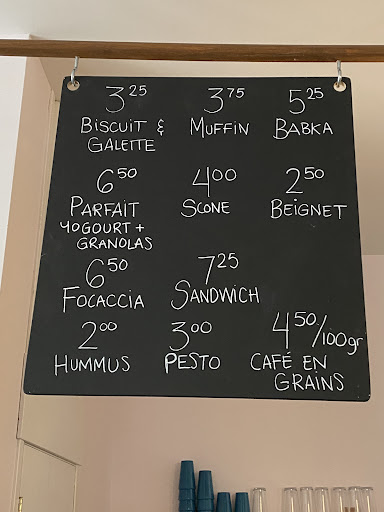 3.25 3.75 5.25
BISCUIT & MUFFIN BABKA
GALETTE
6.50 4.00 2.50
PARFAIT SCONE BEIGNET
YOGOURT +
GRANOLAS
6.50 7.25
FOCACCIA SANDWICH
2.00 3.00 4.50/100gr
HUMMUS PESTO CAFÉ EN
GRAINS